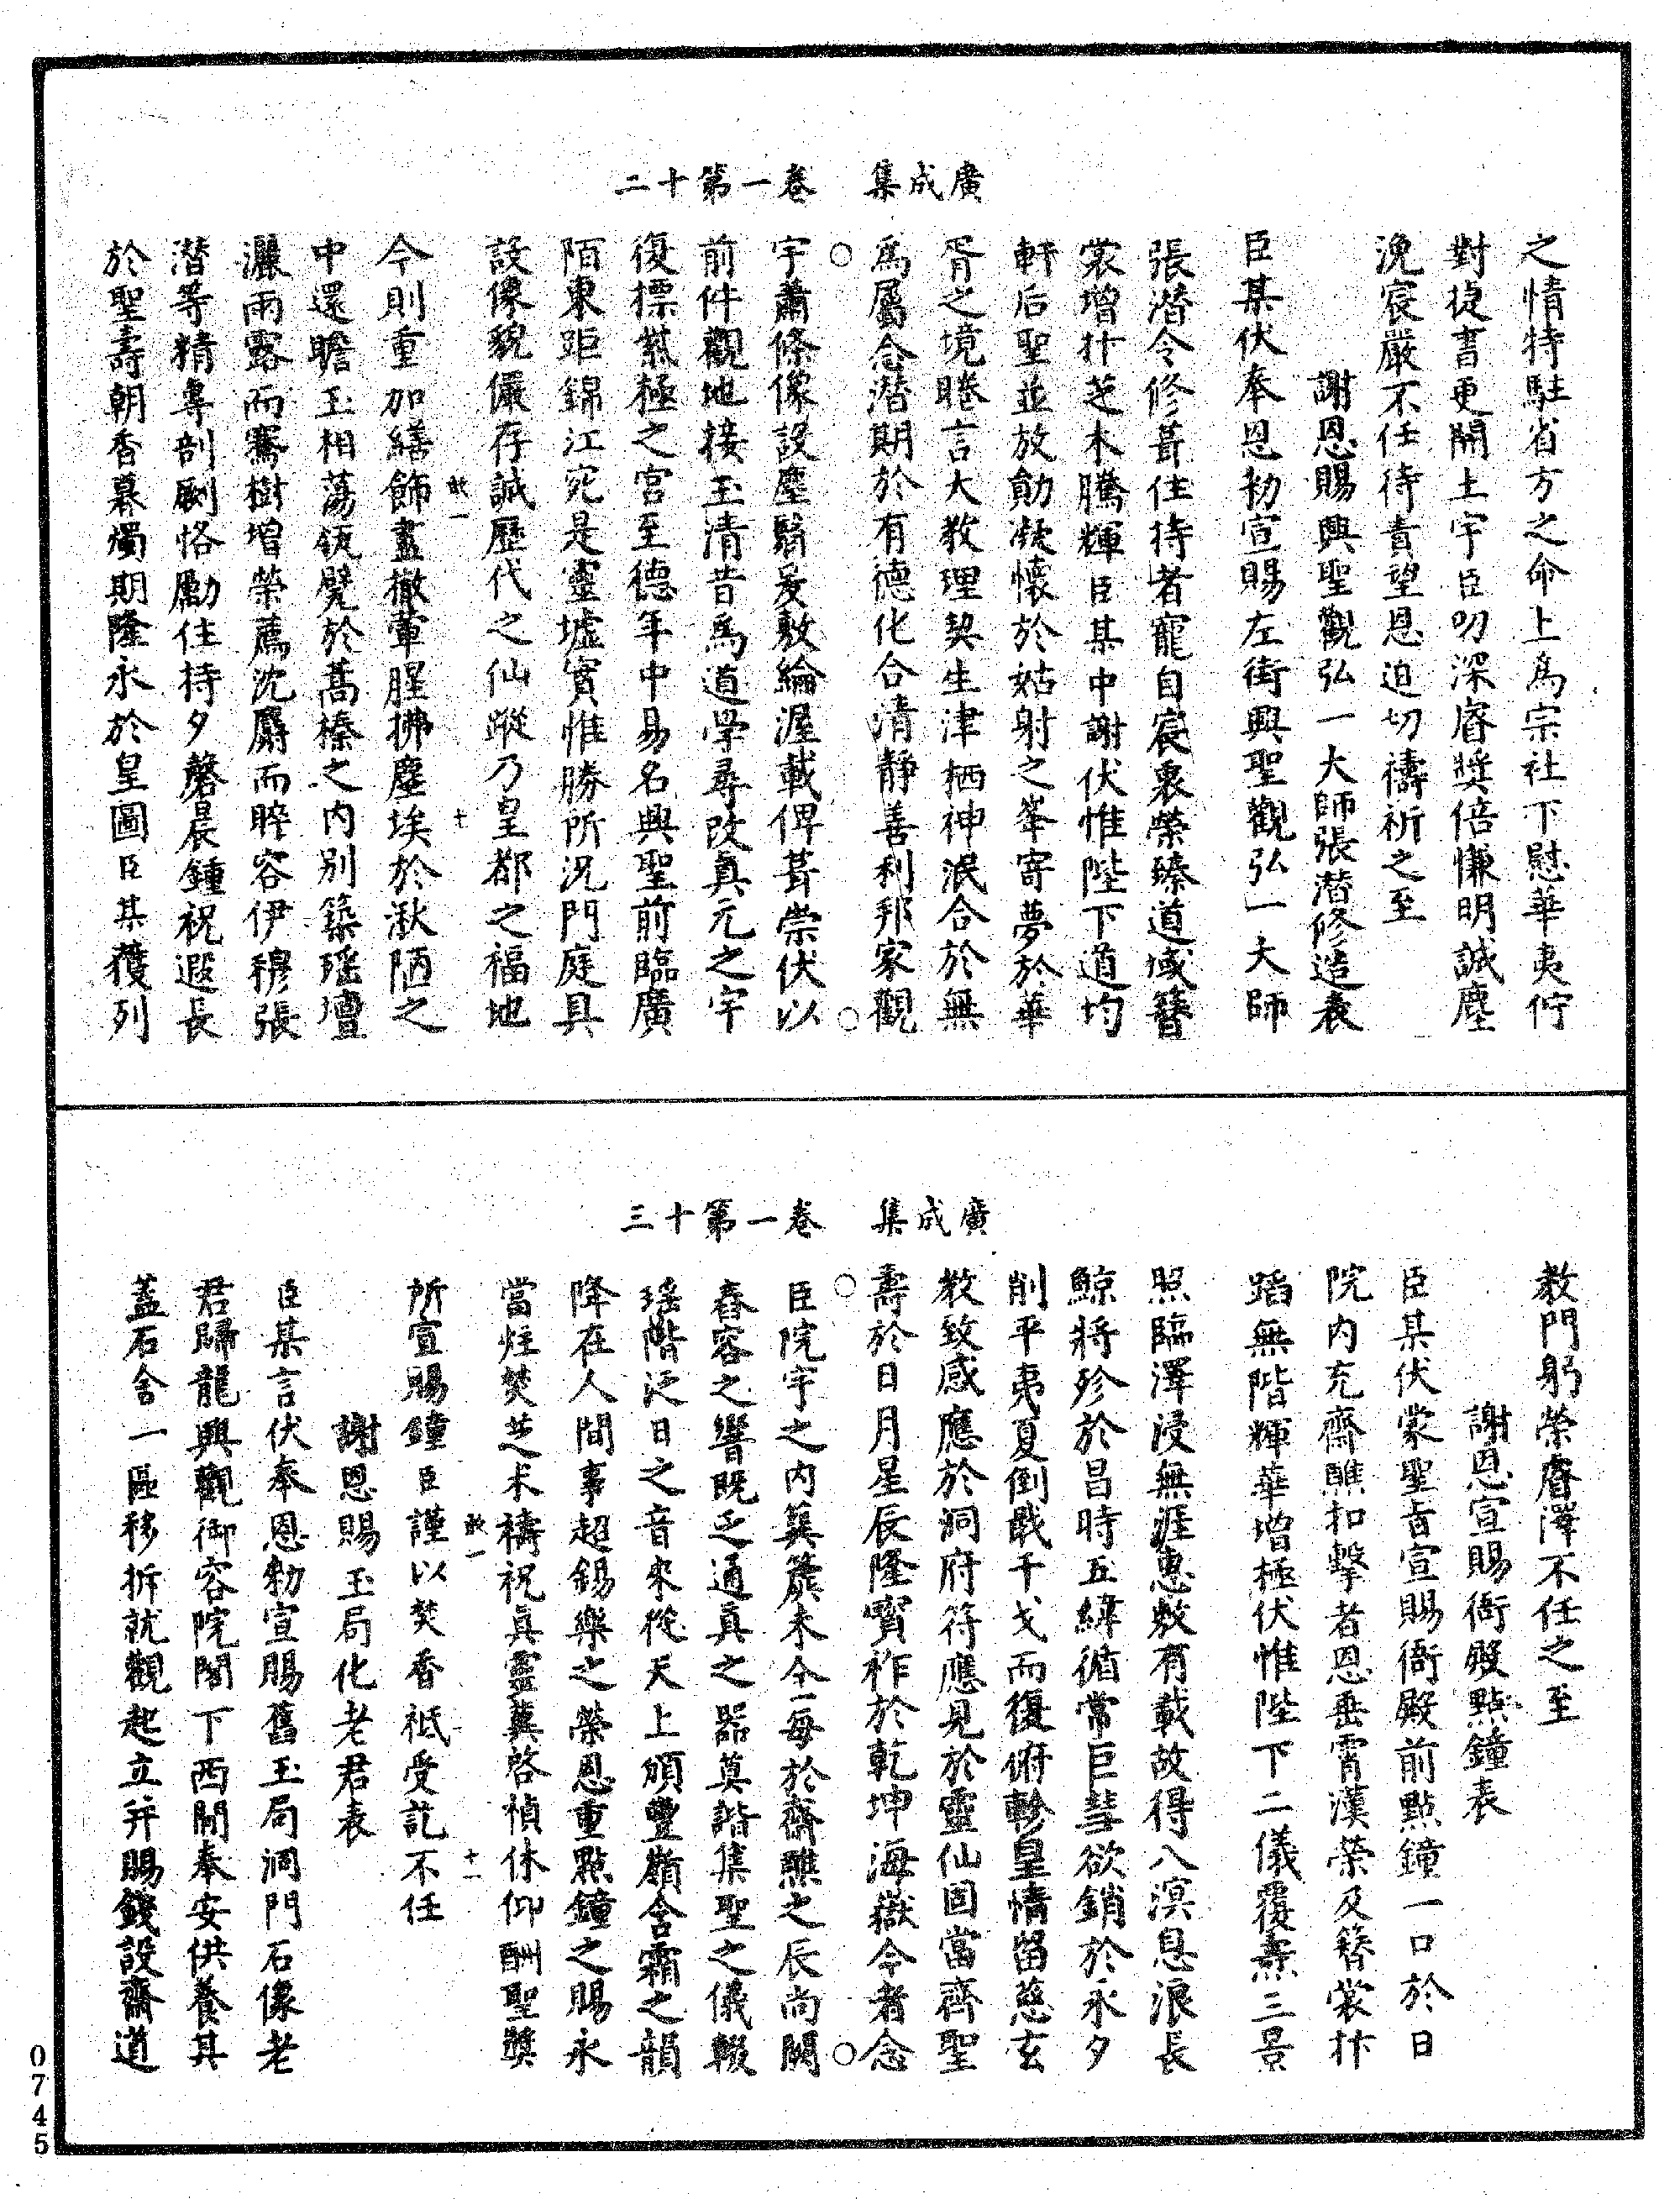 廣成集　卷一第十二
之情特駐省方之命上爲宗社下慰華夷佇
對捷書更開土宇臣叨深睿奬倍慊明誠塵
浼宸嚴不任待責望恩迫切禱祈之至
謝恩賜興聖觀弘一大師張潛修造表
臣某伏奉恩勑宣賜左街興聖觀弘一大師
張潛令修葺住持者寵自宸衷榮臻道域簪
裳增抃芝木騰輝臣某中謝伏惟陛下道均
軒后聖並放勛凝懷於姑射之峯寄夢於華
胥之境睠言大教理契生津栖神泯合於無
爲屬念潛期於有德化合清靜善利邦家觀
宇蕭條像設塵翳爰敷綸渥載俾葺崇伏以
前件觀地接玉清昔爲道學尋改真元之宇
復標紫極之宮至德年中易名興聖前臨廣
陌東距錦江宛是靈墟實惟勝所況門庭具
設像貌儼存誠歷代之仙蹤乃皇都之福地
今則重加繕飾盡撤葷腥拂塵埃於湫陋之
中還瞻玉相蕩瓴甓於蒿榛之內別築瑶壇
灑雨露而騫樹增榮薦沈麝而睟容伊穆張
潛等精專剖劂恪勵住持夕磬晨鍾祝遐長
於聖壽朝香暮燭期隆永於皇圖臣某獲列
敢一
十
廣成集　卷一第十三
教門躬榮睿澤不任之至
謝恩宣賜衙殿點鐘表
臣某伏蒙聖旨宣賜衙殿前點鐘一口於日
院内充齋醮扣擊者恩垂霄漢榮及簪裳抃
蹈無階輝華增極伏惟陛下二儀覆燾三景
照臨澤浸無涯惠敷有載故得八溟息浪長
鯨將殄於昌時五緯循常巨彗欲銷於永夕
削平夷夏倒戢干戈而復俯軫皇情留慈玄
教致感應於洞府符應見於靈仙固當齊聖
壽於日月星辰隆寳祚於乾坤海嶽今者念
臣院宇之内簨簴未全每於齋醮之辰尚闕
舂容之響旣乏通真之器莫諧集聖之儀輟
瑶階泛日之音來從天上頒豐嶺含霜之韻
降在人間事超錫樂之榮恩重點鐘之賜永
當炷焚芝朮禱祝真靈冀啓楨休仰酬聖奬
所宣賜鐘臣謹以焚香祗受訖不任
謝恩賜玉局化老君表
臣某言伏奉恩勑宣賜舊玉局洞門石像老
君歸龍興觀御容院閣下西間奉安供養其
蓋石舍一區移拆就觀起立并賜錢設齋道
敢一
十一
0745